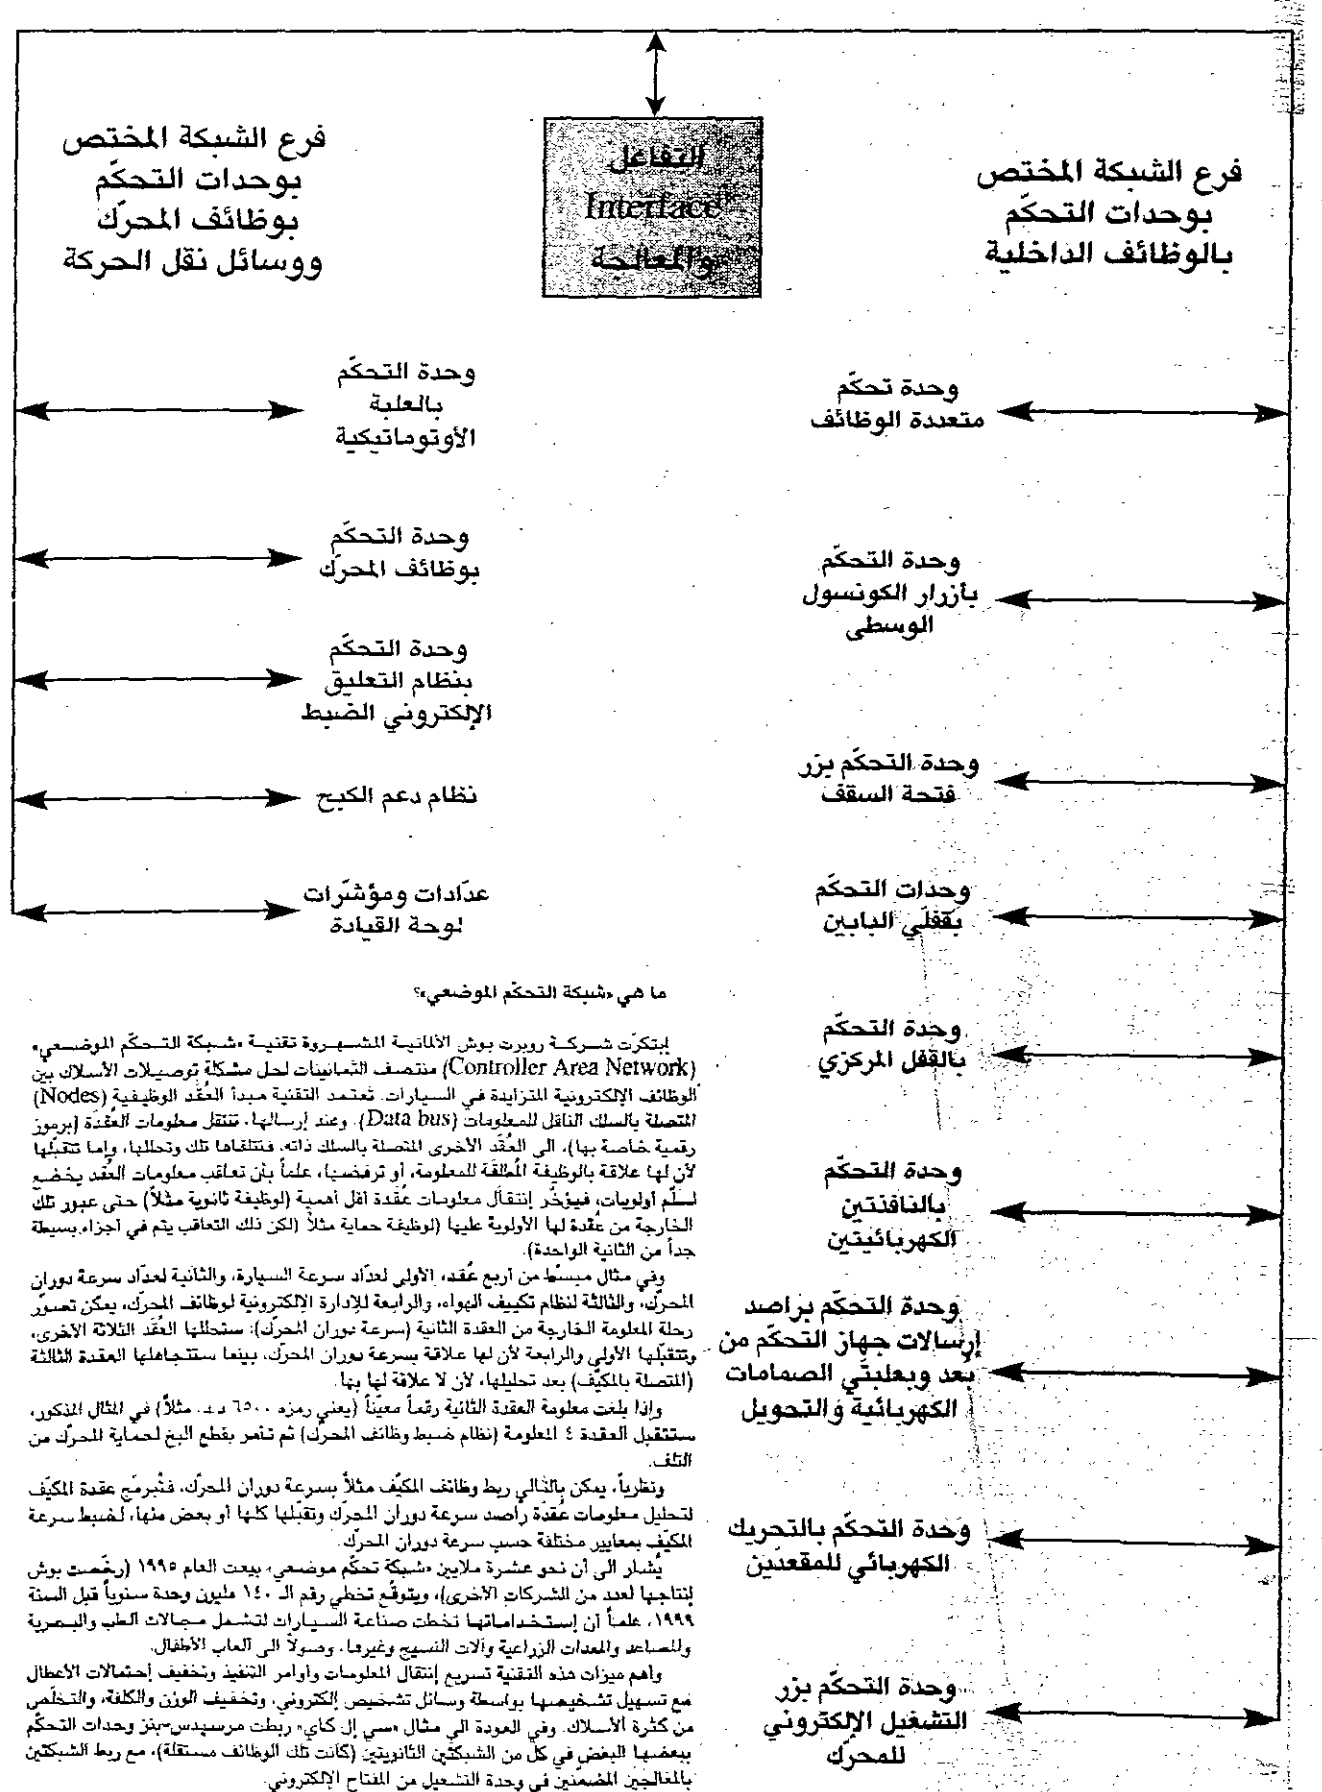 فرع الشبكة المختص
بوحدات التحكّم
بالوظائف الداخلية
التفاعل
Interface
والمعالجة
فرع الشبكة المختص
بوحدات التحكّم
بوظائف المحرّك
ووسائل نقل الحركة
وحدة تحكّم
متعددة الوظائف
وحدة التحكّم
بأزرار الكونسول
الوسطى
وحدة التحكّم بزر
فتحة السقف
وحدات التحكّم
بقفلَي البابين
وحدة التحكّم
بالقفل المركزي
وحدة التحكّم
بالنافذتين
الكهربائيتين
وحدة التحكّم براصد
إرسالات جهاز التحكّم من
بُعد وبعلبتَي الصمامات
الكهربائية والتحويل
وحدة التحكّم بالتحريك
الكهربائي للمقعدَين
وحدة التحكّم بزر
التشغيل الإلكتروني
للمحرّك
وحدة التحكّم
بالعلبة
الأوتوماتيكية
وحدة التحكّم
بوظائف المحرّك
وحدة التحكّم
بنظام التعليق
الإلكتروني الضبط
نظام دعم الكبح
عدّادات ومؤشّرات
لوحة القيادة
ما هي «شبكة التحكّم الموضعي»؟
إبتكرّت شركة روبرت بوش الألمانية المشهروة تقنية «شبكة التحكّم الموضعي»
(Controller Area Network) منتصف الثمانينات لحل مشكلة توصيلات الأسلاك بين
الوظائف الإلكترونية المتزايدة في السيارات. تعتمد التقنية مبدأ العُقَد الوظيفية (Nodes)
المتصلة بالسلك الناقل للمعلومات (Data bus). وعند إرسالها، تنتقل معلومات العُقدَة (برموز
رقمية خاصة بها)، الى العُقَد الأخرى المتصلة بالسلك ذاته، فتتلقاها تلك وتحللها، وإما تتقبّلها
لأن لها علاقة بالوظيفة المُطلقَة للمعلومة، أو ترفضها، علماً بأن تعاقب معلومات العُقد يخضع
لسلّم أولويات، فيؤخّر إنتقال معلومات عُقدة أقل أهمية (لوظيفة ثانوية مثلاً) حتى عبور تلك
الخارجة من عُقدة لها الأولوية عليها (لوظيفة حماية مثلاً (لكن ذلك التعاقب يتم في أجزاء بسيطة
جداً من الثانية الواحدة).
وفي مثال مبسّط من أربع عُقد، الأولى لعدّاد سرعة السيارة، والثانية لعدّاد سرعة دوران
المحرّك، والثالثة لنظام تكييف الهواء، والرابعة للإدارة الإلكترونية لوظائف المحرك، يمكن تصوّر
رحلة المعلومة الخارجة من العقدة الثانية (سرعة دوران المحرّك): ستحللها العُقَد الثلاثة الأخرى،
وتتقبّلها الأولى والرابعة لأن لها علاقة بسرعة دوران المحرّك، بينما ستتجاهلها العقدة الثالثة
(المتصلة بالمكيّف) بعد تحليلها، لأن لا علاقة لها بها.
وإذا بلغت معلومة العقدة الثانية رقماً معيّناً (يعني رمزه ٦٥٠٠ د.د. مثلاً) في المثال المذكور،
ستتقبل العقدة ٤ المعلومة (نظام ضبط وظائف المحرّك) ثم تأمر بقطع البخ لحماية المحرّك من
التلف.
ونظرياً، يمكن بالتالي ربط وظائف المكيّف مثلاً بسرعة دوران المحرّك، فتُبرمَج عقدة المكيّف
لتحليل معلومات عُقدَة راصد سرعة دوران المحرّك وتقبّلها كلها أو بعض منها، لضبط سرعة
المكيّف بمعايير مختلفة حسب سرعة دوران المحرّك.
يُشار الى أن نحو عشرة ملايين «شبكة تحكّم موضعي» بيعت العام ١٩٩٥ (رخّصت بوش
إنتاجها لعدد من الشركات الأخرى)، ويتوقّع تخطي رقم الـ ١٤٠ مليون وحدة سنوياً قبل السنة
١٩٩٩، علماً أن إستخداماتها تخطت صناعة السيارات لتشمل مجالات الطب والبحرية
والمصاعد والمعدات الزراعية وآلات النسيج وغيرها، وصولاً الى ألعاب الأطفال.
وأهم ميزات هذه التقنية تسريع إنتقال المعلومات وأوامر التنفيذ وتخفيف إحتمالات الأعطال
مع تسهيل تشخيصها بواسطة وسائل تشخيص إلكتروني، وتخفيف الوزن والكلفة، والتخلّص
من كثرة الأسلاك. وفي العودة الى مثال «سي إل كاي» ربطت مرسيدس-بنز وحدات التحكّم
ببعضها البعض في كل من الشبكتين الثانويتين (كانت تلك الوظائف مستقلة)، مع ربط الشبكتين
بالمعالجين المضمّنين في وحدة التشغيل من المفتاح الإلكتروني.